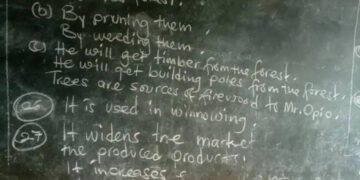 (b) By pruning them.
By weeding them.
(c) He will get timber from the forest.
He will get building poles from the forest.
Trees are sources of firewood to Mr. Opio.
26 It is used in winnowing.
27 It widens the market
the produced products.
It increases